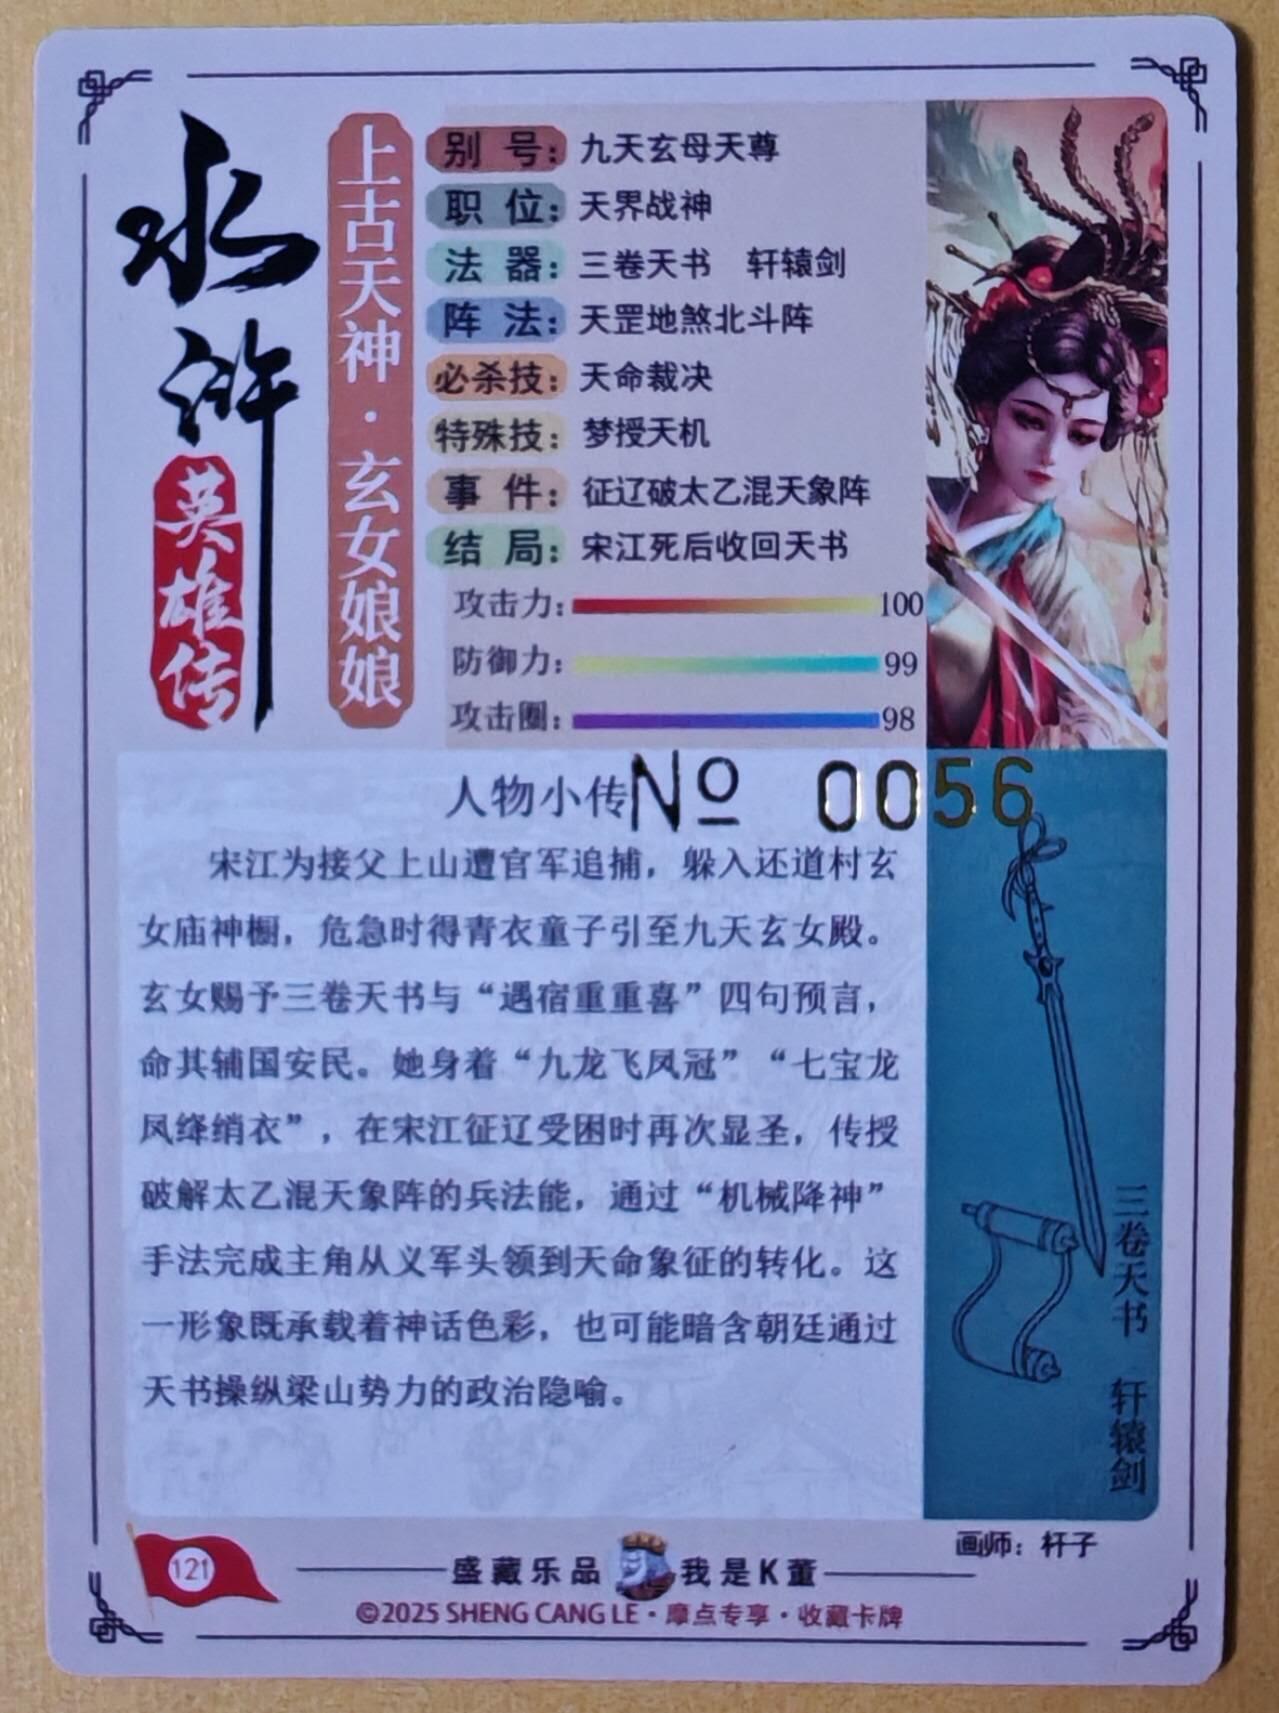 水浒
英雄传
上古天神·玄女娘娘
别号：九天玄母天尊
职位：天界战神
法器：三卷天书 轩辕剑
阵法：天罡地煞北斗阵
必杀技：天命裁决
特殊技：梦授天机
事件：征辽破太乙混天象阵
结局：宋江死后收回天书
攻击力：100
防御力：99
攻击圈：98
人物小传
No 0056
宋江为接父上山遭官军追捕，躲入还道村玄
女庙神橱，危急时得青衣童子引至九天玄女殿。
玄女赐予三卷天书与“遇宿重重喜”四句预言，
命其辅国安民。她身着“九龙飞凤冠”“七宝龙
凤绛绡衣”，在宋江征辽受困时再次显圣，传授
破解太乙混天象阵的兵法能，通过“机械降神”
手法完成主角从义军头领到天命象征的转化。这
一形象既承载着神话色彩，也可能暗含朝廷通过
天书操纵梁山势力的政治隐喻。
三卷天书 轩辕剑
画师：杆子
121
盛藏乐品 我是K董
©2025 SHENG CANG LE·摩点专享·收藏卡牌